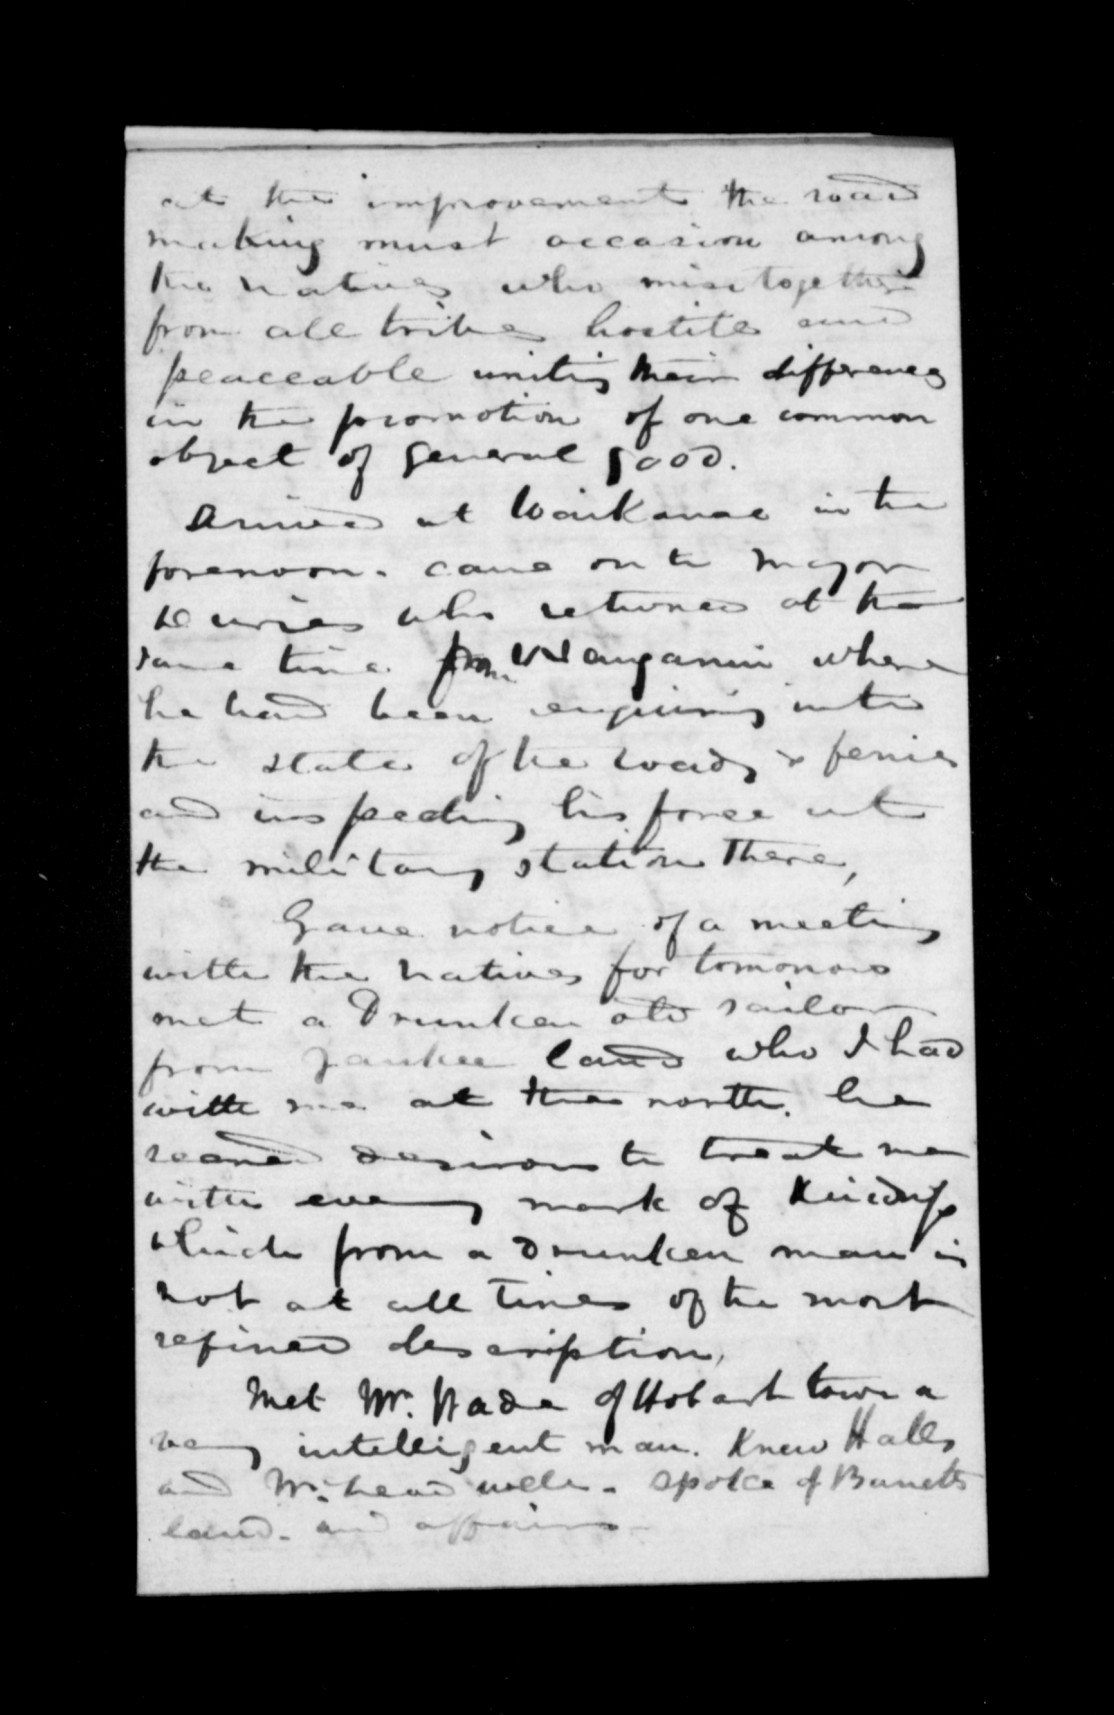 at the improvement the road
making must occasion among
the natives who mix together
from all tribes hostile and
peaceable uniting their differences
in the promotion of one common
object of general good.
Arrived at Waikanae in the
forenoon. came on to Major
Duries who returned at the
same time from Wanganui where
he had been enquiring into
the state of the roads & ferries
and inspecting his force at
the military station there,
Gave notice of a meeting
with the natives for tomorrow
met a Drunken old sailor
from Yankee land who I had
with me at the north. he
seemed desirous to treat me
with every mark of Kindness
which from a Drunken man is
not at all times of the most
refined description,
Met Mr. Wade of Hobart town a
very intelligent man. Knew Halls
and Mr. head well. Spoke of
land. and affairs.